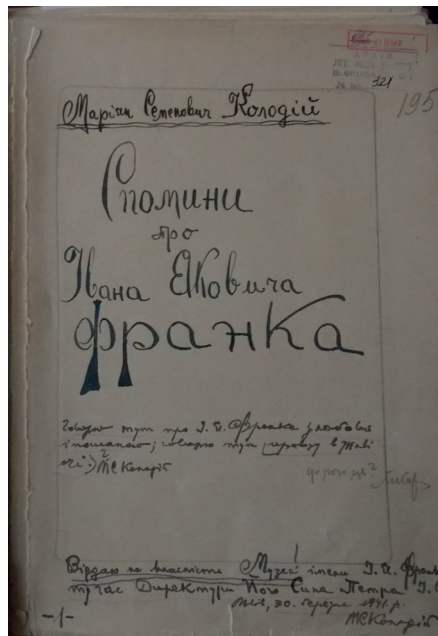 321
195
Маріян Семенович Колодій
Спомини
про
Івана Яковича
Франка
Говорю тут про І. Я. Франка з любовю
і пошаною; говорю тут правду в живі
очі:) МСКолодій
Віддаю на власність Музеєві імени І. Я. Франка
тут час Директури Його Сина Петра І.
30. березня 1941 р.
МСКолодій
-1-